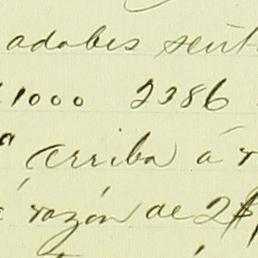 adobes
1000 2386
arriba á
razón de 2$